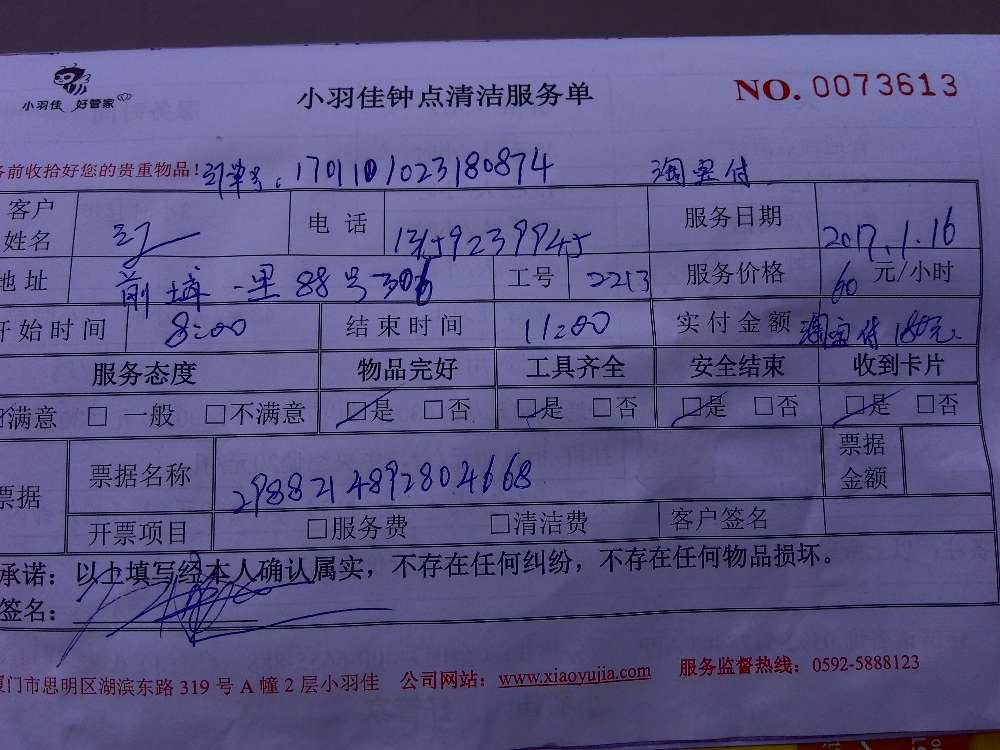 小羽佳 好管家
小羽佳钟点清洁服务单
NO. 0073613
务前收拾好您的贵重物品! 订单号: 1701101023180874 淘宝付
客户姓名 电话 服务日期 2017.1.16
地址 前埔一里88号306 工号 2213 服务价格 60 元/小时
开始时间 8:00 结束时间 11:00 实付金额 淘宝付180元.
服务态度 物品完好 工具齐全 安全结束 收到卡片
满意 □ 一般 □不满意 □是 □否 □是 □否 □是 □否 □是 □否
票据 票据名称 2988214892804668 票据金额
开票项目 □服务费 □清洁费 客户签名
承诺：以上填写经本人确认属实，不存在任何纠纷，不存在任何物品损坏。
签名：
厦门市思明区湖滨东路 319 号 A 幢 2 层小羽佳 公司网站：www.xiaoyujia.com 服务监督热线：0592-5888123